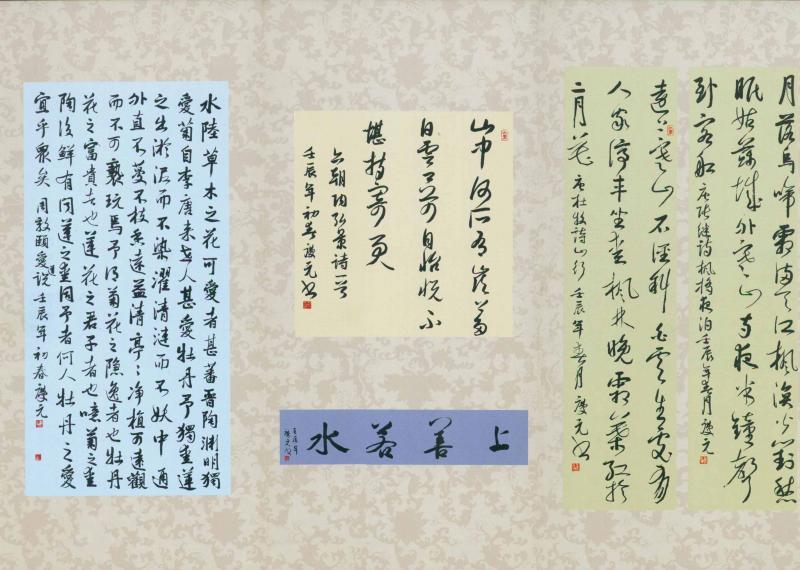 月落烏啼霜滿天江楓漁火對愁
眠姑蘇城外寒山寺夜半鐘聲
到客船 唐張繼詩楓橋夜泊壬辰年春月慶元
遠上寒山石徑斜白雲生處有
人家停車坐愛楓林晚霜葉紅於
二月花 唐杜牧詩山行 壬辰年春月慶元書
山中何所有嶺上多
白雲只可自怡悅不
堪持寄君
六朝陶弘景詩一首
壬辰年初春慶元書
上善若水
壬辰年
慶元書
水陸草木之花可愛者甚蕃晉陶淵明獨
愛菊自李唐來世人甚愛牡丹予獨愛蓮
之出淤泥而不染濯清漣而不妖中通
外直不蔓不枝香遠益清亭〻淨植可遠觀
而不可褻玩焉予謂菊花之隱逸者也牡丹
花之富貴者也蓮花之君子者也噫菊之愛
陶後鮮有聞蓮之愛同予者何人牡丹之愛
宜乎眾矣 周敦頤愛蓮說 壬辰年初春慶元